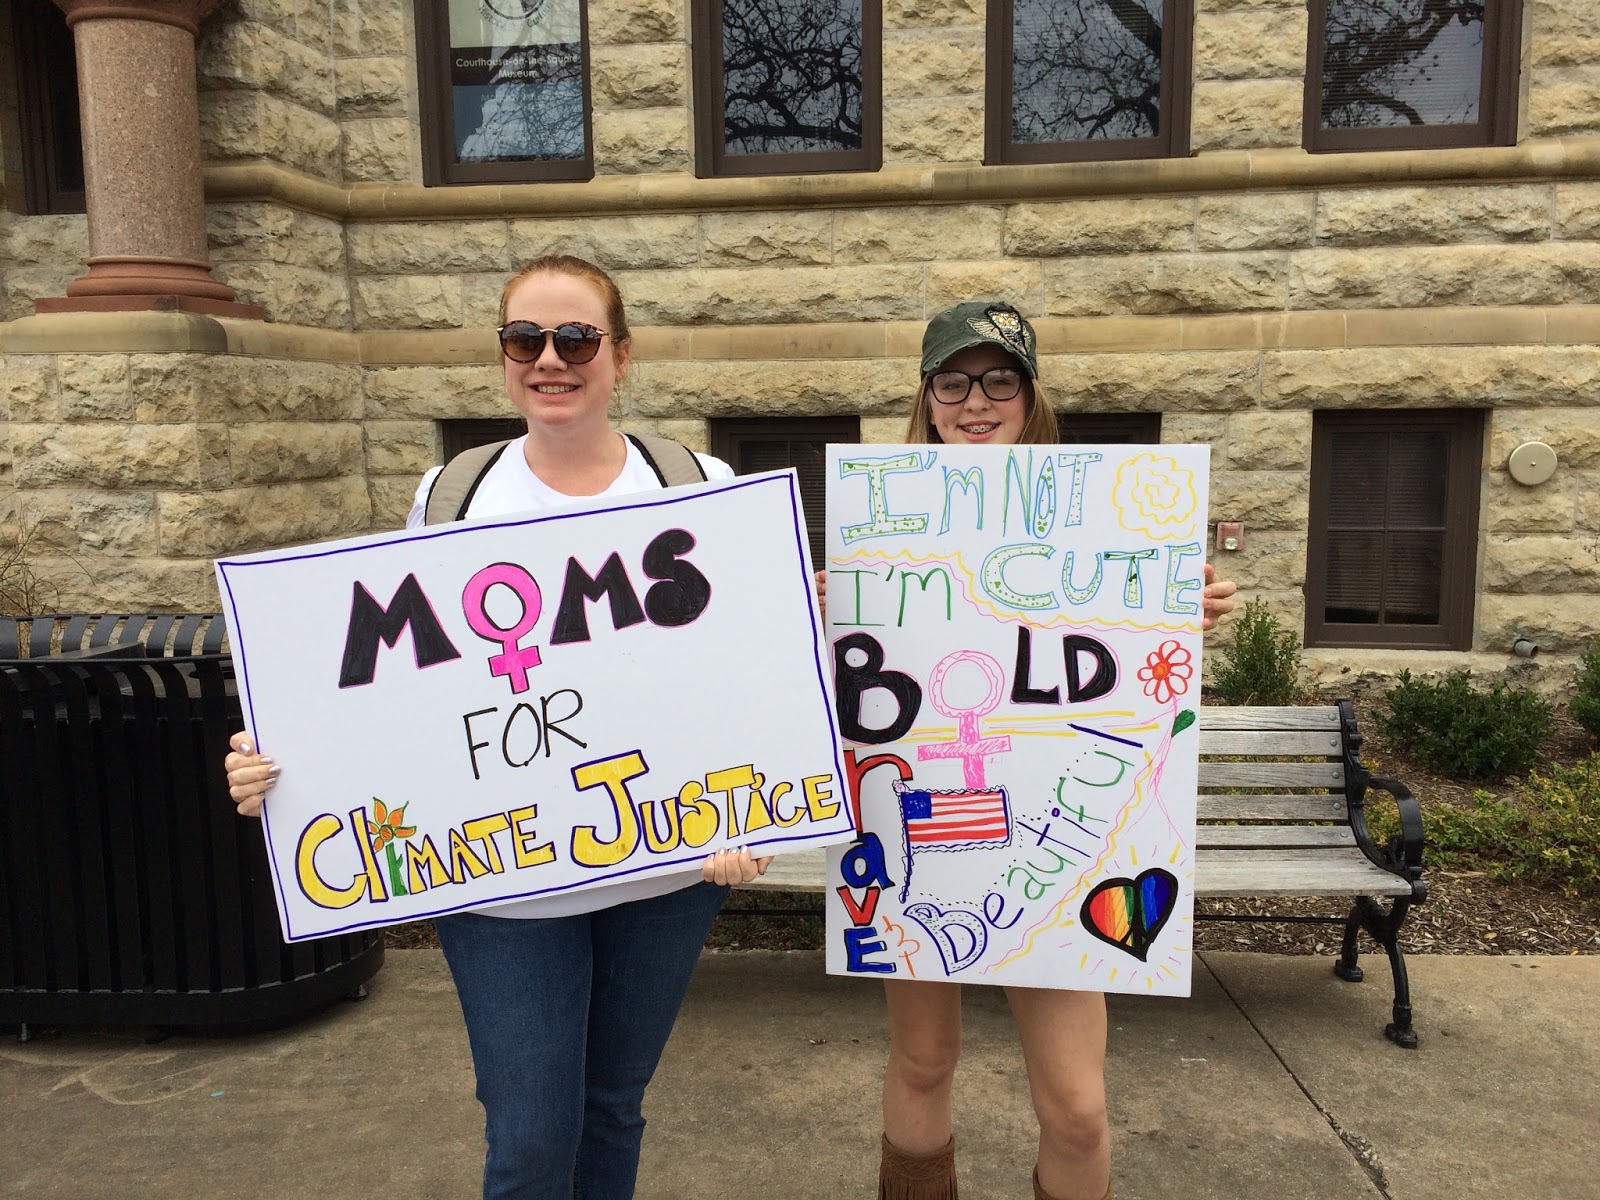 Courthouse-on-the-Square
Museum
MOMS
FOR
CLiMATE JUSTiCE
I'm NOT
CUTE
I'm
BOLD
BraVE
Beautiful